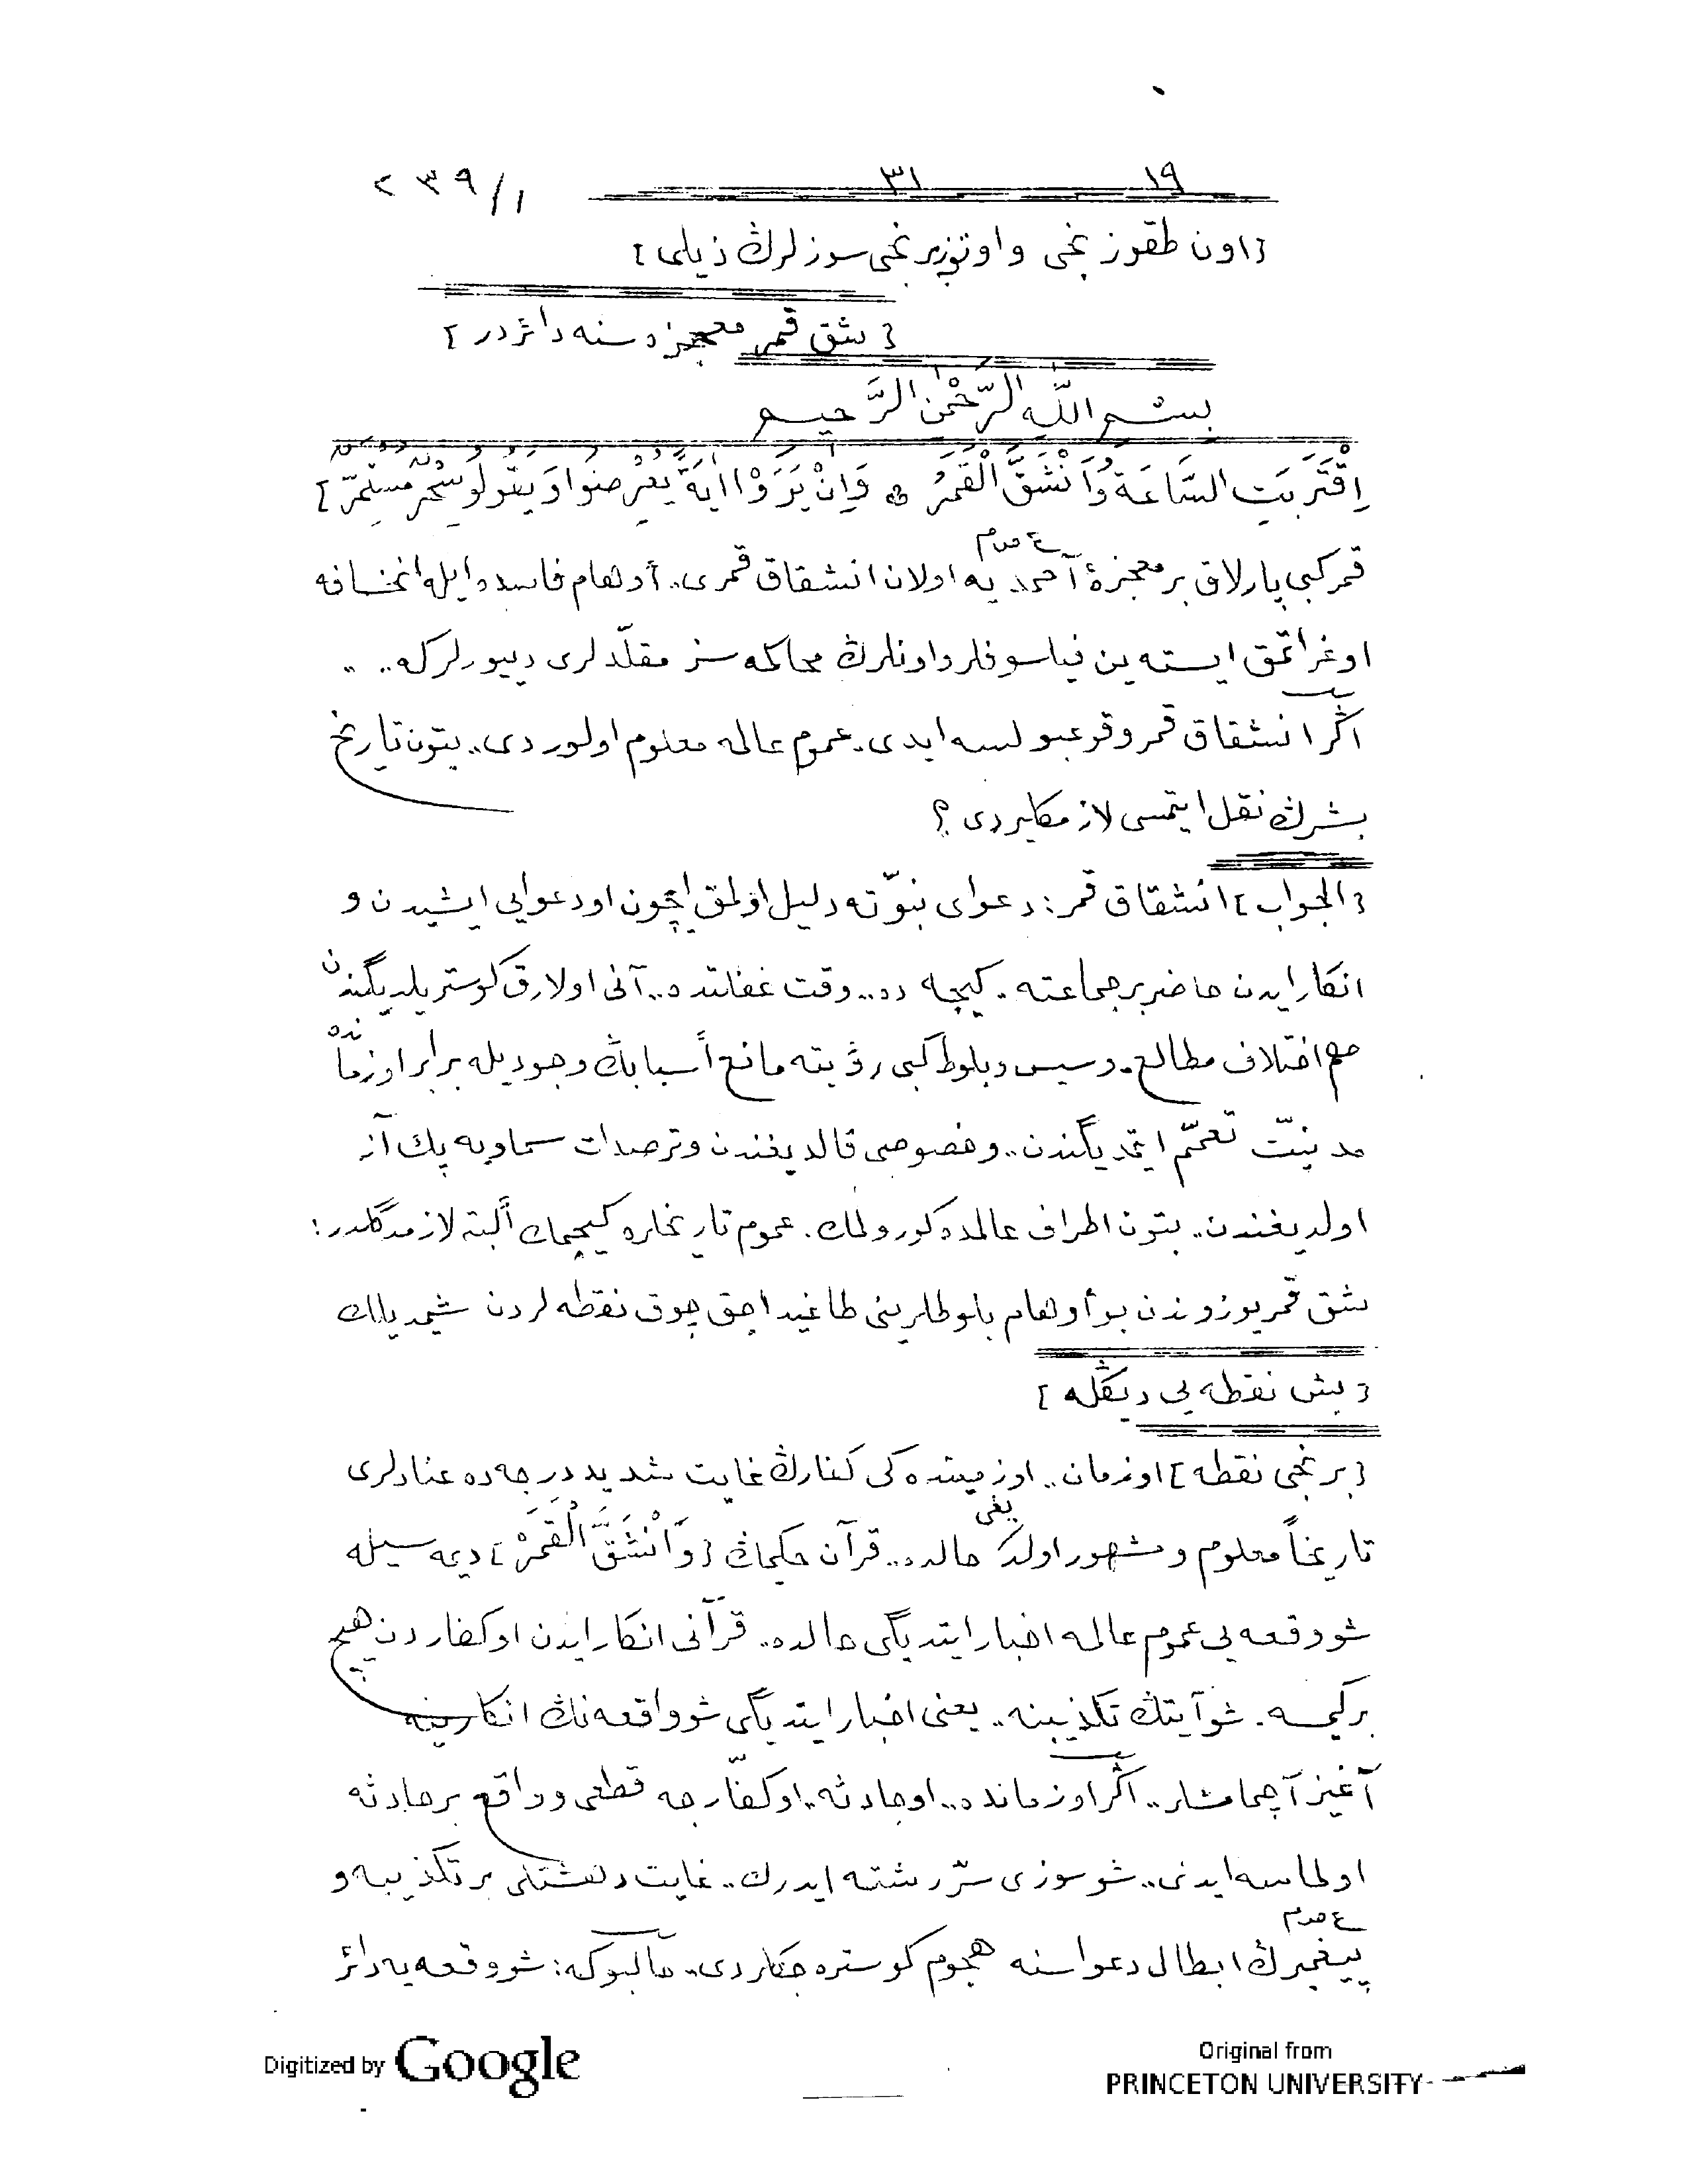 ١٩ ٣١ ٢٣٩/١
[اون طقوزنجی و اوتوزبرنجی سوزلرڭ ذیلی]
[شق قمر معجزه‌سنه دائردر]
بِسْمِ اللّٰهِ الرَّحْمٰنِ الرَّحِيمِ
اِقْتَرَبَتِ السَّاعَةُ وَانْشَقَّ الْقَمَرُ ۞ وَاِنْ يَرَوْا اٰيَةً يُعْرِضُوا وَيَقُولُوا سِحْرٌ مُسْتَمِرٌّ]
قمر کبی پارلاق بر معجزۀ احمدیه ع‌ص‌م اولان انشقاق قمری.. أوهام فاسده ایله انخسافه
اوغراتمق ایسته‌ین فیلسوفلر و اونلرڭ محاکمه‌سز مقلّدلری دییورلرکه.. ..
اگر انشقاق قمر وقوعبولسه ایدی. عموم عالمه معلوم اولوردی.. بتون تاریخ
بشرڭ نقل ایتمسی لازمکلیردی؟
[الجواب] انشقاق قمر: دعوای نبوّته دلیل اولمق ایچون او دعوایی ایشیدن و
انکار ایدن حاضر بر جماعته. کیجه‌ده.. وقت غفلتده.. آنی اولارق کوستریلدیگندن
هم اختلاف مطالع. و سیس و بلوط کبی رؤیته مانع أسبابڭ وجودیله برابر اوزمانده
مدنیّت تعمّم ایتمدیگندن.. و خصوصی قالدیغندن و ترصدات سماویه پك آز
اولدیغندن.. بتون اطراف عالمده کورولمك. عموم تاریخلره کیچمك ألبته لازم دگلدر:
شق قمر یوزوندن بو أوهام بلوطلرینی طاغیداجق چوق نقطه‌لردن شیمدیلك
[بش نقطه‌یی دیڭله]
[برنجی نقطه] اوزمان.. اوزمینده‌کی کفارڭ غایت شدید درجه‌ده عنادلری
تاریخاً معلوم و مشهور اولدیغی حالده.. قرآن حکیمڭ [وَانْشَقَّ الْقَمَرُ] دیمه‌سیله
شو وقعه‌یی عموم عالمه اخبار ایتدیگی حالده.. قرآنی انکار ایدن او کفاردن هیچ
بر کیمسه. شو آیتڭ تکذیبنه.. یعنی اخبار ایتدیگی شو واقعه‌نڭ انکارینه
آغیز آچمامشلر.. اگر اوزمانده.. او حادثه.. او کفّارجه قطعی و واقع بر حادثه
اولماسه ایدی.. شو سوزی سرّ رشته ایدرك.. غایت دهشتلی بر تکذیبه و
پیغمبرڭ ع‌ص‌م ابطال دعواسنه هجوم کوستره‌جکلردی. حالبوکه: شو وقعه‌یه دائر
Digitized by Google
Original from
PRINCETON UNIVERSITY